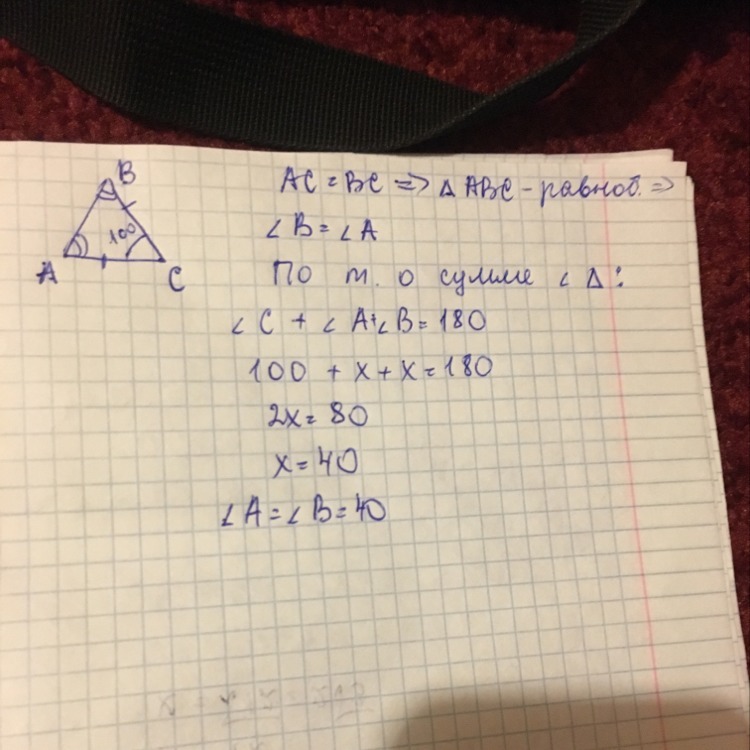 B
100
A
C
AC = BC => Δ ABC - равноб. =>
∠ B = ∠ A
По т. о сумме ∠ Δ:
∠ C + ∠ A + ∠ B = 180
100 + x + x = 180
2x = 80
x = 40
∠ A = ∠ B = 40